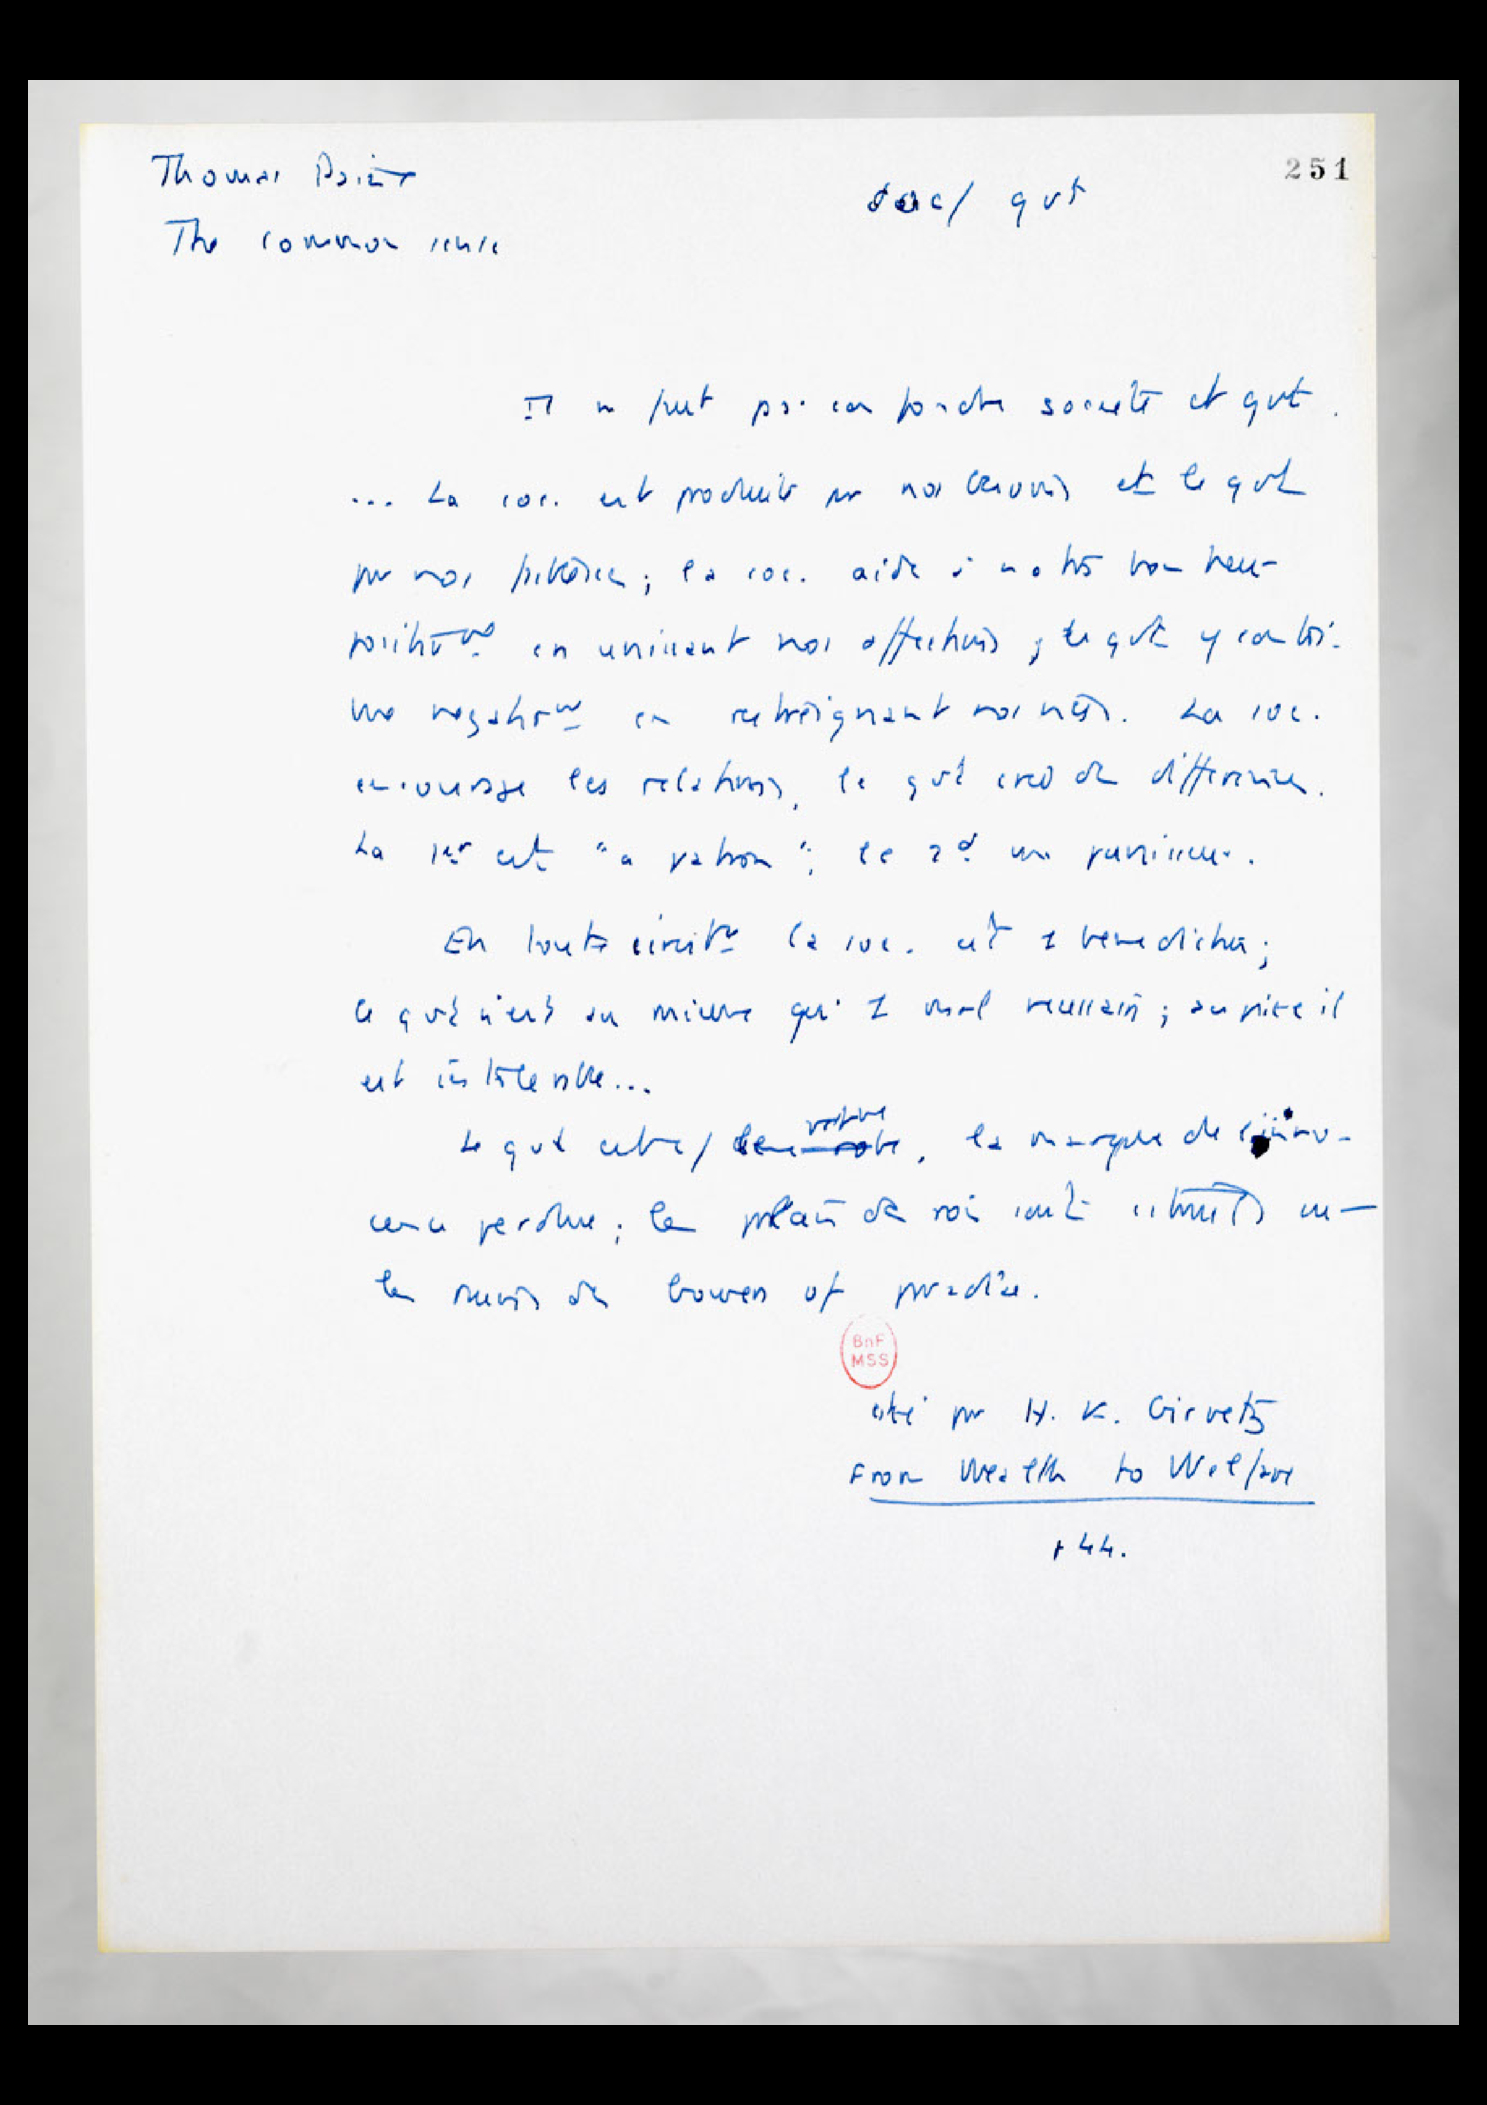 251
Thomas Paine
soc/ gvt
The common sense
Il ne faut pas confondre société et gvt.
... La soc. est produite par nos besoins et le gvt
par nos faiblesses ; la soc. aide à notre bonheur
positivt en unissant nos affections ; le gvt y contri-
bue negativt en restreignant nos vices. La soc.
encourage les relations, le gvt cree des différences.
La 1ère est "a patron" ; le 2d un punisseur.
En toute circstce la soc. est 1 benediction ;
le gvt n'est au mieux qu' 1 mal necessaire ; au pire il
est intolerable...
Le gvt est c/ vetue, la marque de l'inno-
cence perdue ; les palais des rois sont construits sur
les ruines des bowers of paradise.
BnF
MSS
cité par H. K. Girvetz
From Wealth to Welfare
p 44.